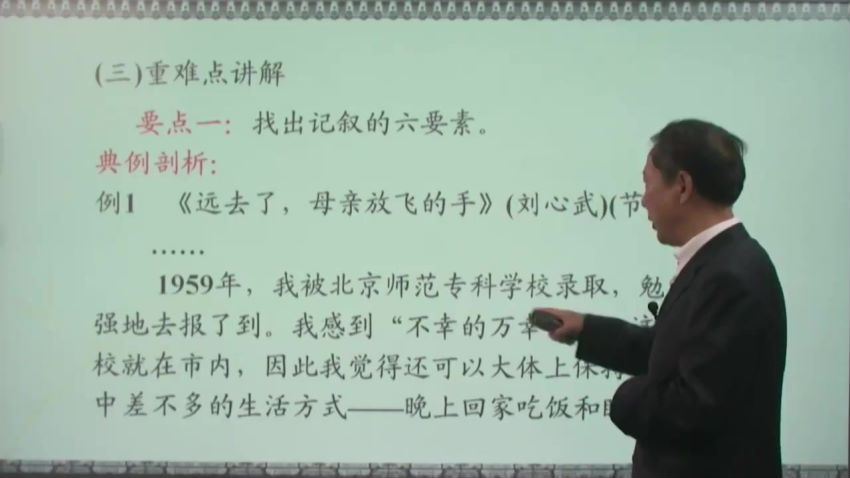 (三)重难点讲解
要点一：找出记叙的六要素。
典例剖析：
例1 《远去了，母亲放飞的手》(刘心武)(节
……
1959年，我被北京师范专科学校录取，勉
强地去报了到。我感到“不幸的万幸
校就在市内，因此我觉得还可以大体上保持
中差不多的生活方式——晚上回家吃饭和